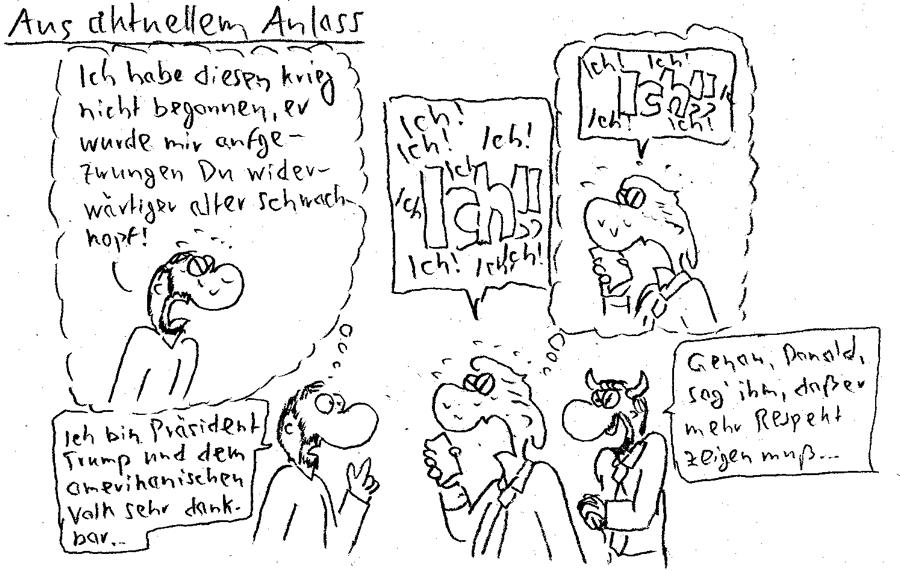 Aus aktuellem Anlass
Ich habe diesen krieg
nicht begonnen, er
wurde mir aufge-
zwungen Du wider-
wärtiger alter Schwach-
kopf!
Ich bin Präsident
Trump und dem
amerikanischen
Volk sehr dank-
bar...
Ich!
Ich!
Ich!
Ich
Ich
Ich!!
Ich!
Ich!
Ich!
Ich!
Ich!
Ich!!
Ich!
Ich!
Genau, Donald,
sag' ihm, daß er
mehr Respekt
zeigen muß...